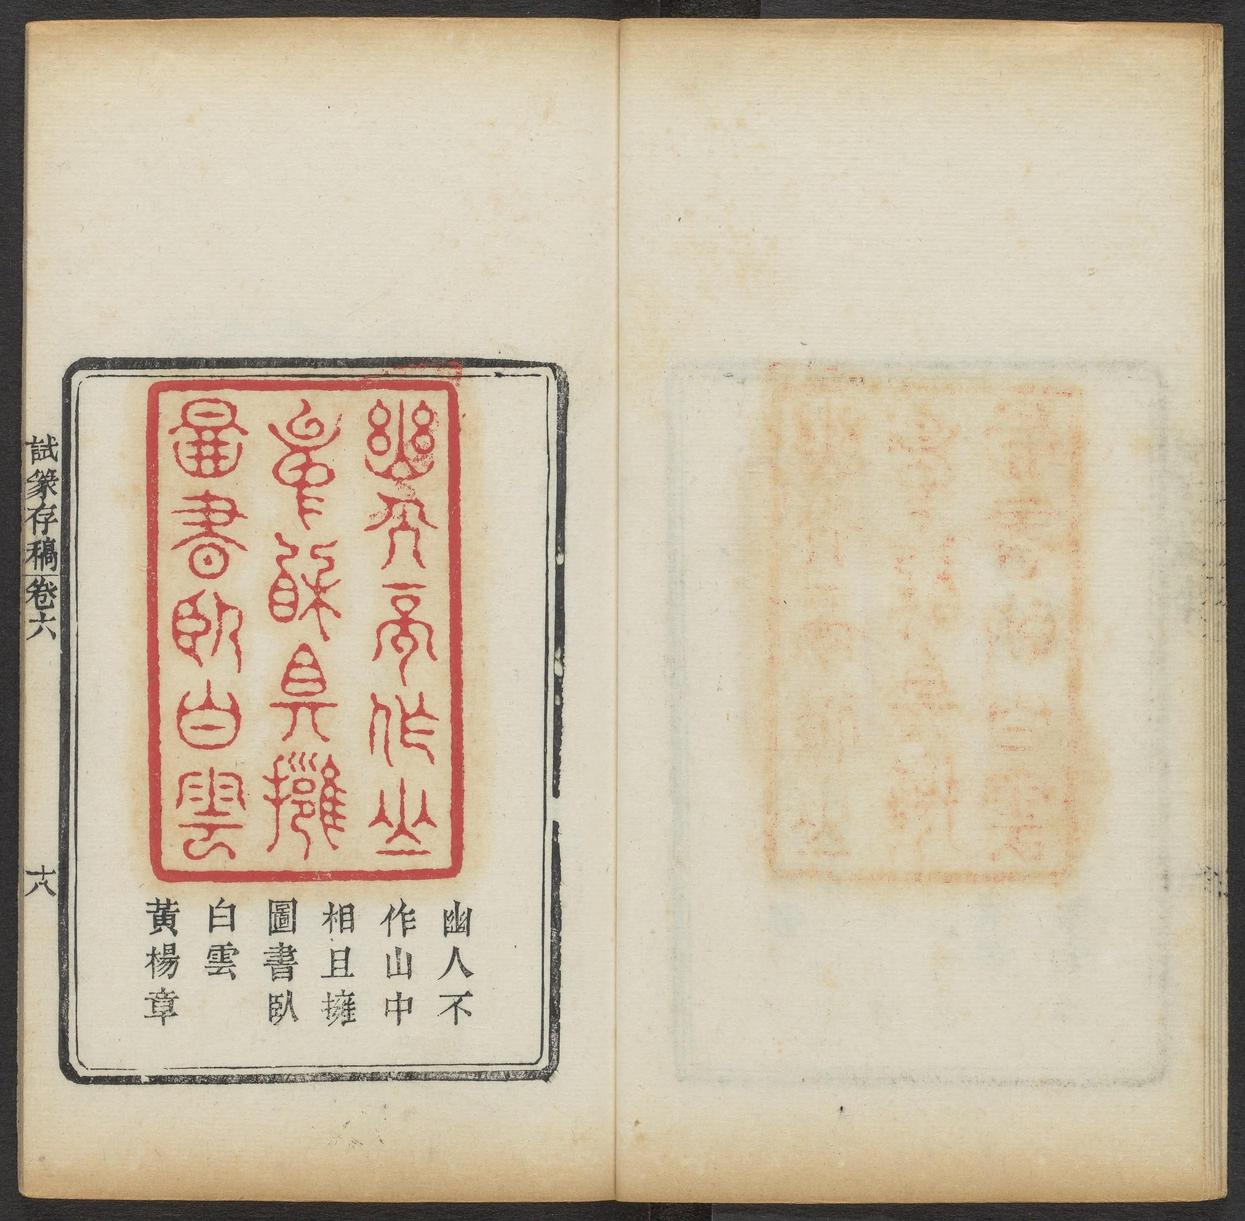 幽人不作山
中相且擁
圖書臥白雲
幽人不
作山中
相且擁
圖書臥
白雲
黃楊章
試篆存稿 卷六
十八